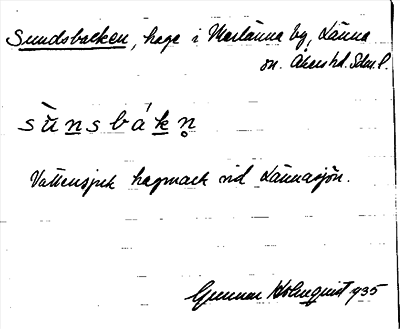 Sundsbacken, hage i Marlänna by, Länna
sn. Åkers hd. Sdm. l.
sùnsbákn̥
Vattensjuk hagmark vid Lännasjön.
Gunnar Holmquist 1935